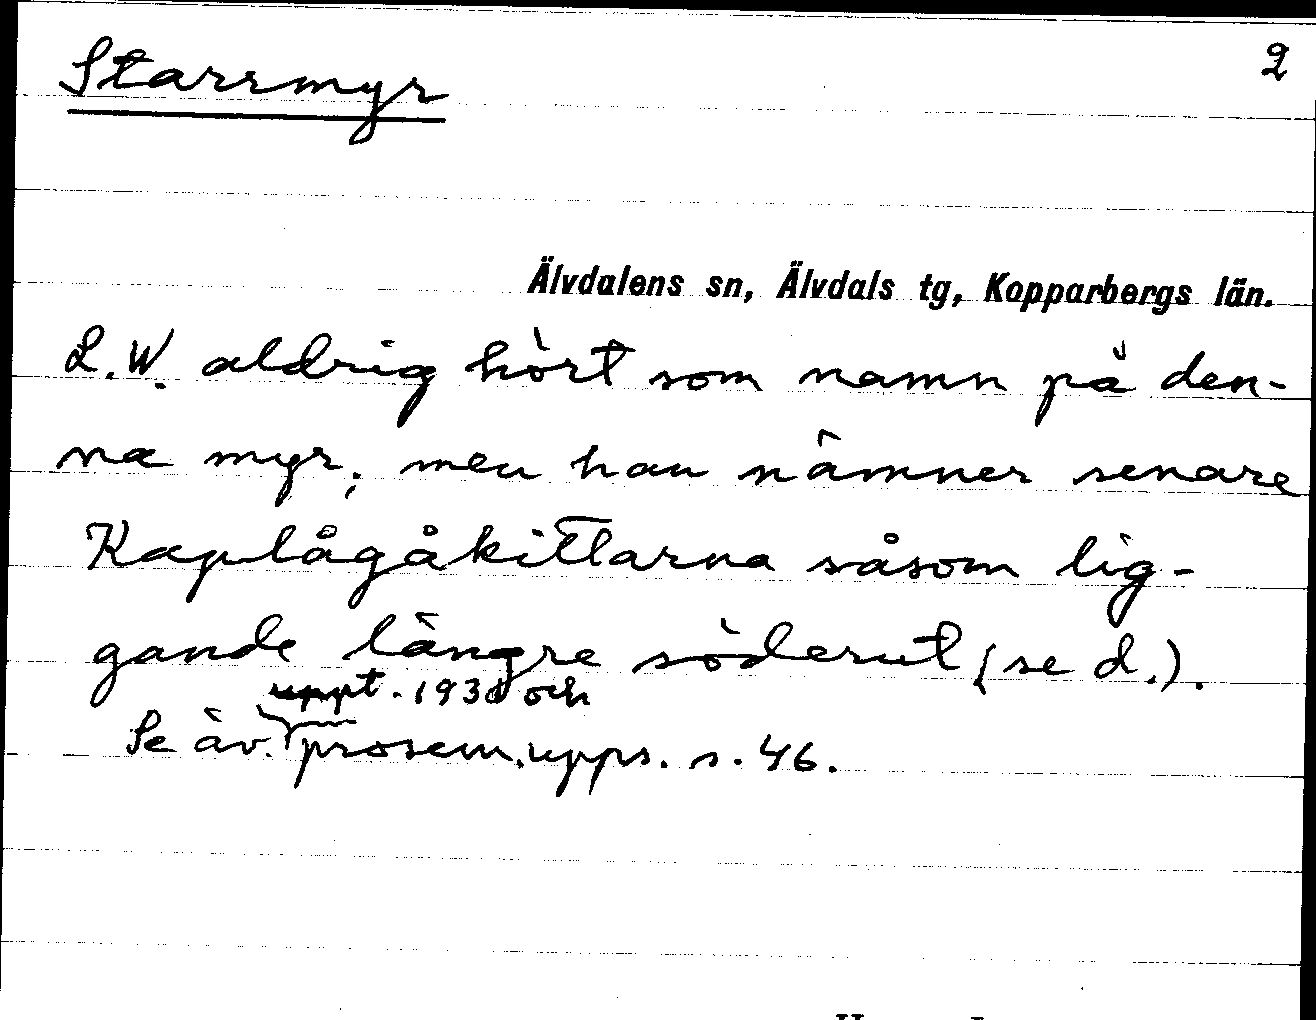 Starrmyr 2
Älvdalens sn, Älvdals tg, Kopparbergs län.
L.W. aldrig hört som namn på den-
na myr; men han nämner senare
Kaplågåkittarna såsom lig-
gande längre söderut (se d.).
uppt. 1930 och
Se äv. prosem.upps. s. 46.